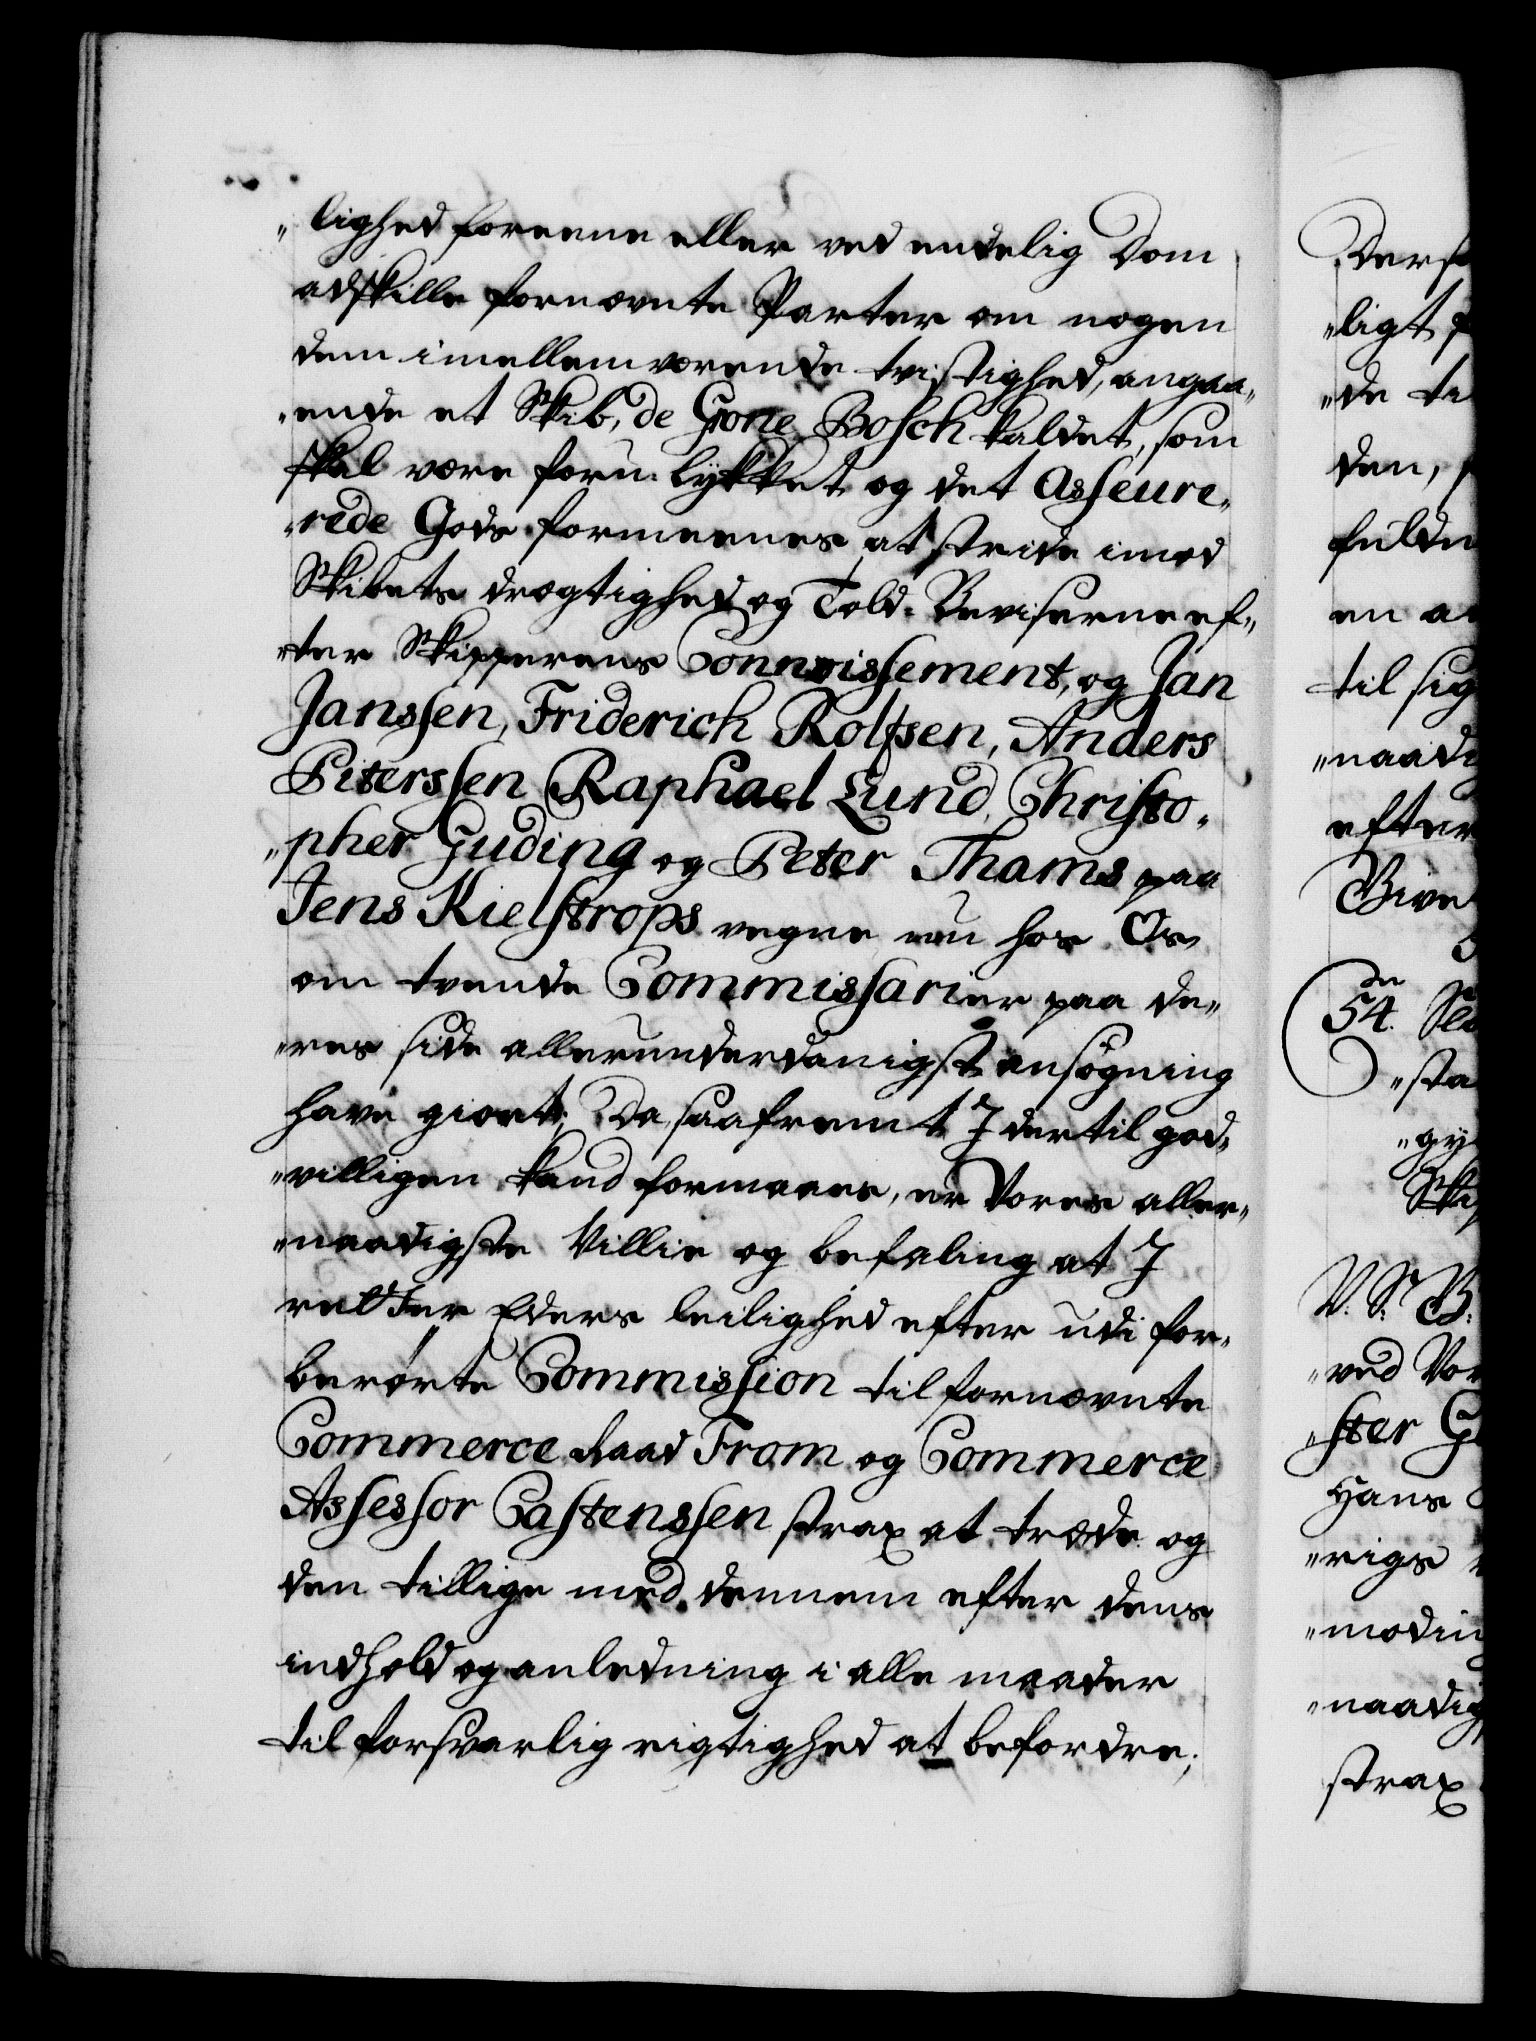 „lighed foreene eller ved endelig Dom
adskille fornævnte Parter om nogen
dem imellem værende tvistighed, angaa„
„ende et Skib, de Grone Bosch kaldet, som
skal være forulykket og det Asseure„
„rede Gods formeenes at stride imod
Skibets drægtighed og Told-Beviserne ef„
„ter Skipperens Connoissement, og Jan
Janssen, Friderich Rolfsen, Anders
Piterssen Raphael Lund, Christo„
„pher Guding og Peter Thams paa
Jens Kielstrops vegne nu hos Os
om tvende Commissarier paa de„
„res side allerunderdanigst ansøgning
have giort; Da saafremt I dertil god„
„villigen kand formaaes, er Vores aller„
„naadigste Villie og befaling at I
retter Eders leilighed efter udi for„
berørte Commission til fornævnte
Commerce Raad From og Commerce
Assessor Castenssen strax at træde og
den tillige med dennem efter dens
indhold og anledning i alle maader
til forsvarlig rigtighed at befordre;
„ligt
„de
den,
en
til sig
efter
54.
„sta
V. S. B.
„ved
„ster
Hans
„rigs
strax